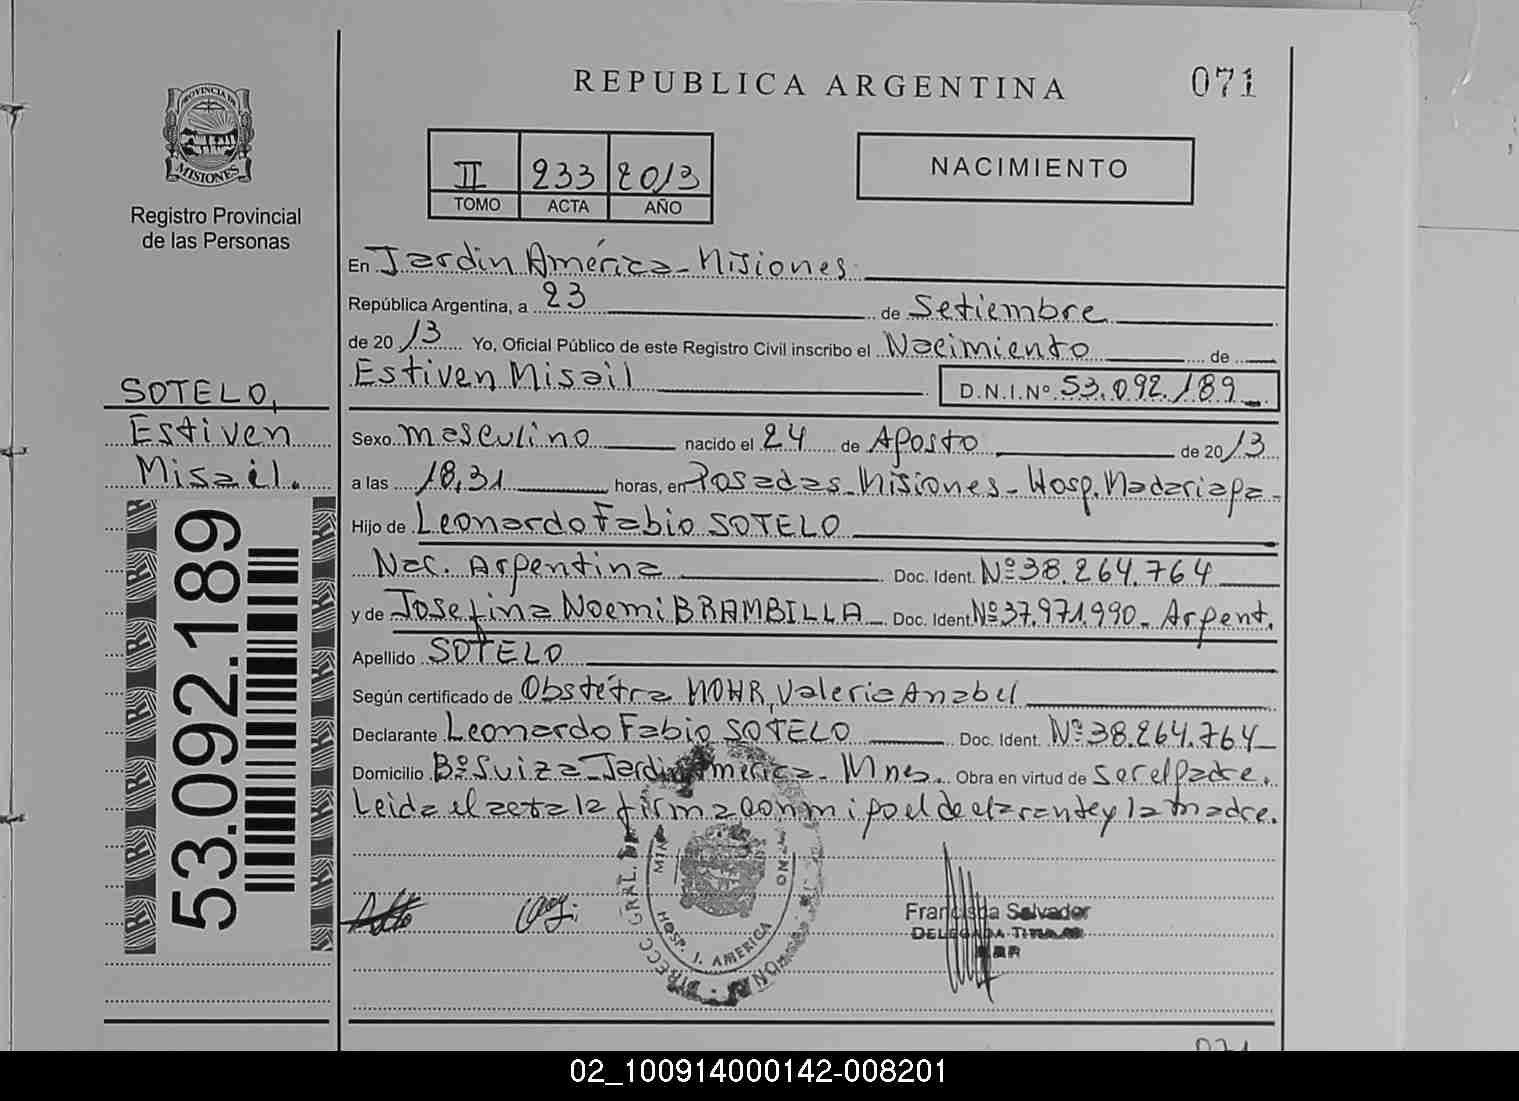 REPUBLICA ARGENTINA
071
PROVINCIA DE
MISIONES
Registro Provincial
de las Personas
II 233 2013
TOMO ACTA AÑO
NACIMIENTO
En Jardin América - Misiones
República Argentina, a 23 de Setiembre
de 2013 Yo, Oficial Público de este Registro Civil inscribo el Nacimiento de
Estiven Misail D.N.I.Nº 53.092.189
SOTELO,
Estiven
Misail.
53.092.189
Sexo masculino nacido el 24 de Agosto de 2013
a las 18,31 horas, en Posadas - Misiones - Hosp. Madariaga -
Hijo de Leonardo Fabio SOTELO
Nac. Argentina Doc. Ident. Nº 38.264.764
y de Josefina Noemi BRAMBILLA Doc. Ident. Nº 37.971.990 - Argent.
Apellido SOTELO
Según certificado de Obstétra MOHR, Valeria Anabel
Declarante Leonardo Fabio SOTELO Doc. Ident. Nº 38.264.764
Domicilio Bº Suiza - Jardin América - Mnes. Obra en virtud de ser el padre.
Leida el acta la firma conmigo el declarante y la madre.
DIRECC GRAL. DE
HOSP. J. AMERICA
Francisca Salvador
DELEGADA TITULAR
02_100914000142-008201